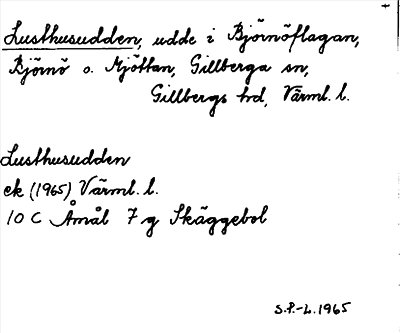 Lusthusudden, udde i Björnöflagan,
Björnö o. Mjöttan, Gillberga sn,
Gillbergs hd, Värml. l.
Lusthusudden
ek (1965) Värml. l.
10 C Åmål 7 g Skäggebol
S.P.-L. 1965